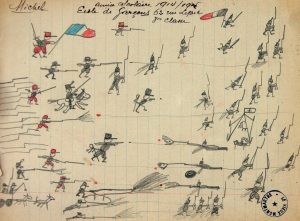 Michel
Année Scolaire 1914/1915
École de Garçons 63 rue Lepic
3e Classe